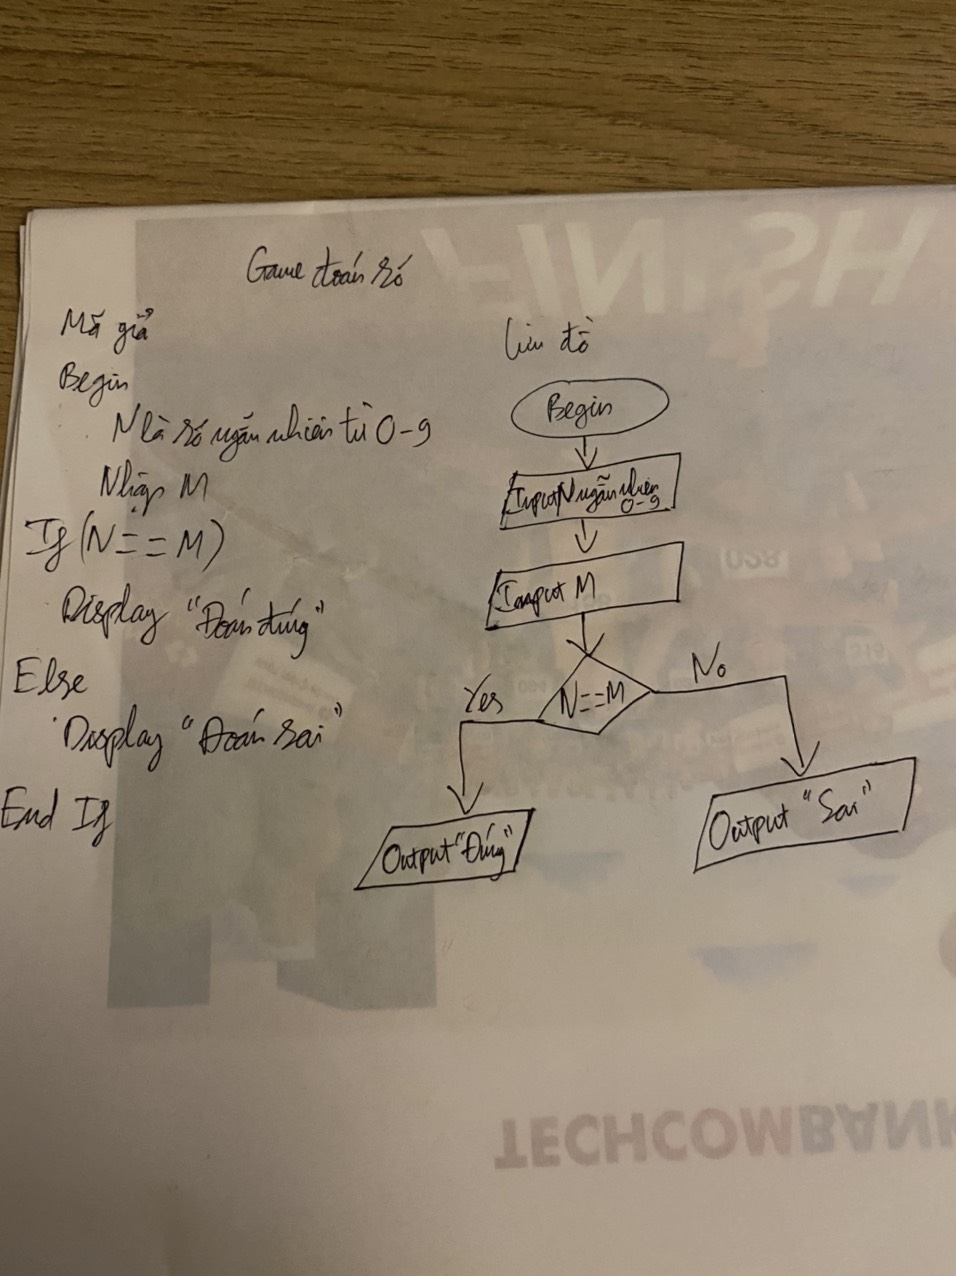 Game đoán số
Mã giả
Begin
N là số ngẫn nhiên từ 0-9
Nhập M
If (N==M)
Display "Đoán đúng"
Else
Display "Đoán sai"
End If
Lưu đồ
Begin
Input N ngẫn nhiên
0-9
Input M
N==M
Yes
No
Output "Đúng"
Output "Sai"
FINISH
028
TECHCOMBANK